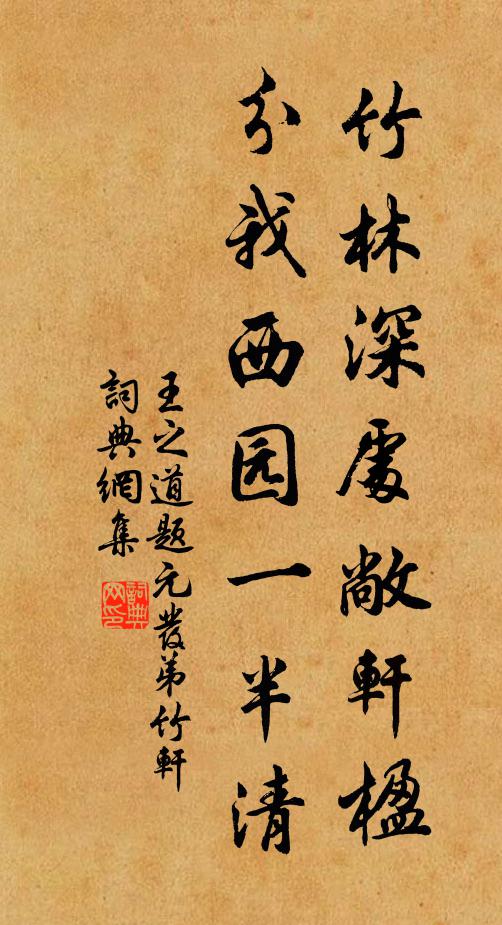 竹林深處敞軒楹
分我西园一半清
王之道题元發弟竹軒
詞典網集
詞典网印